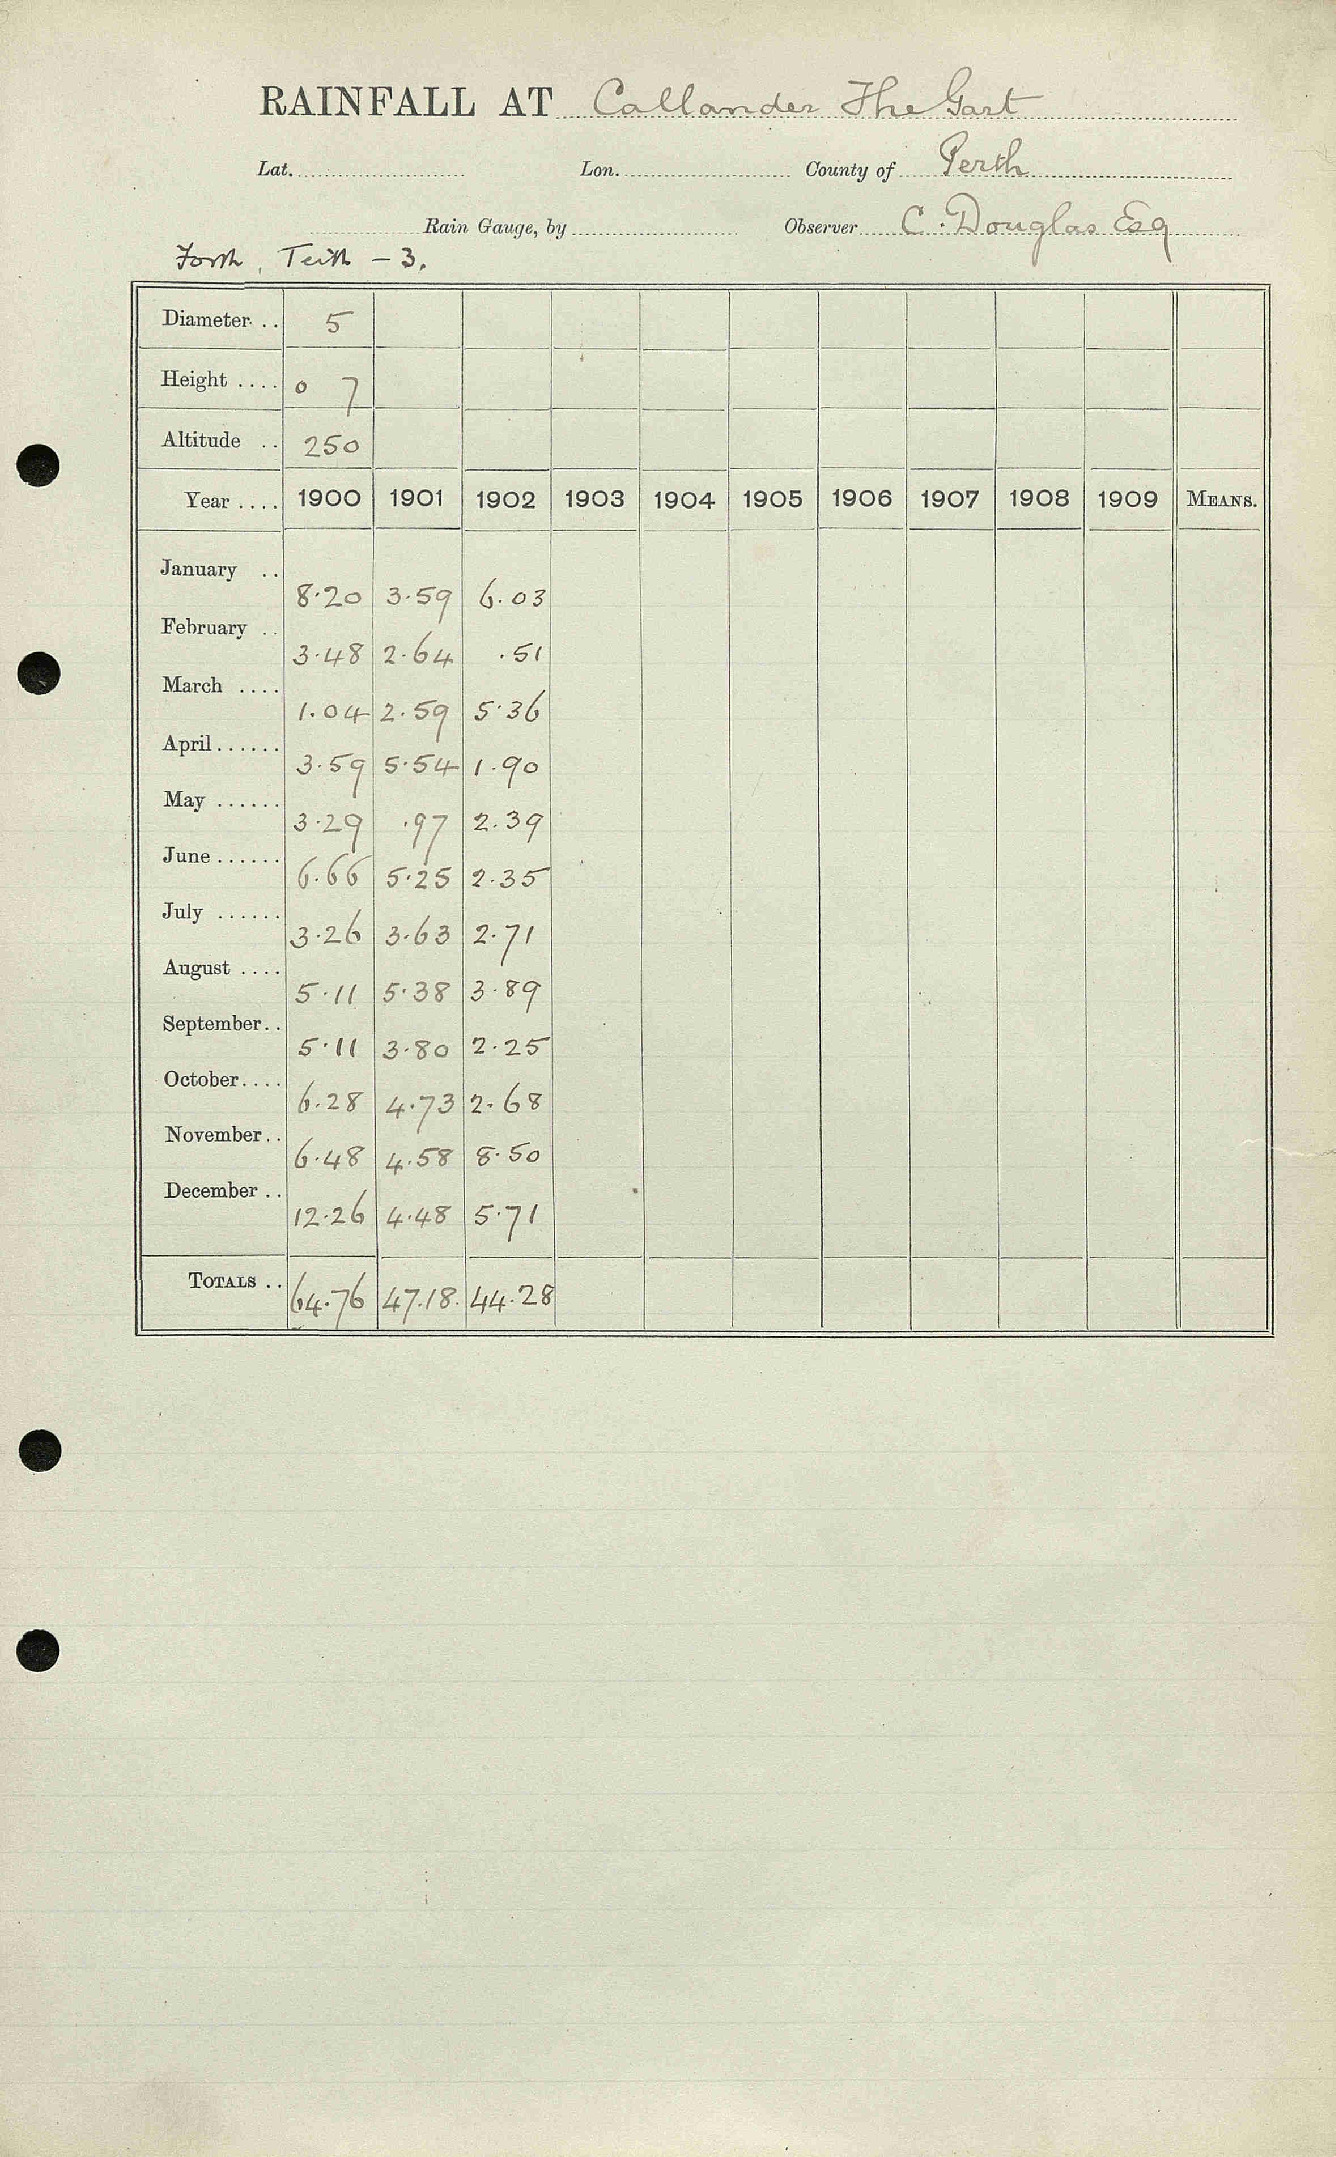 RAINFALL AT Callander The Gart
Lat. Lon. County of Perth
Rain Gauge, by Observer C. Douglas Esq
Forth, Teith - 3.
Diameter .. 5
Height .... 0 7
Altitude .. 250
Year .... 1900 1901 1902 1903 1904 1905 1906 1907 1908 1909 MEANS.
January .. 8.20 3.59 6.03
February .. 3.48 2.64 .51
March .... 1.04 2.59 5.36
April ...... 3.59 5.54 1.90
May ...... 3.29 .97 2.39
June ...... 6.66 5.25 2.35
July ...... 3.26 3.63 2.71
August .... 5.11 5.38 3.89
September .. 5.11 3.80 2.25
October .... 6.28 4.73 2.68
November .. 6.48 4.58 8.50
December .. 12.26 4.48 5.71
TOTALS .. 64.76 47.18. 44.28